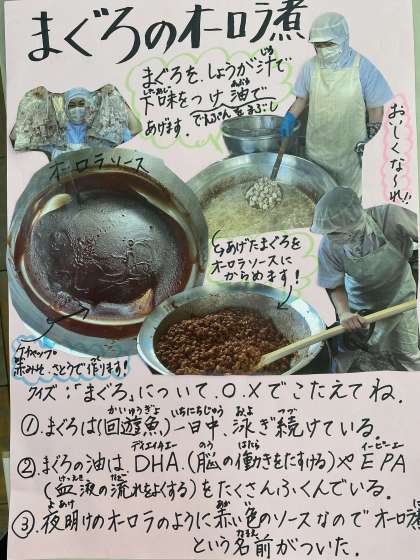 まぐろのオーロラ煮
まぐろを、しょうが汁で
下味をつけ、油で
でんぷんをまぶし
あげます。
おいしくな〜れ!!
オーロラソース
あげたまぐろを
オーロラソースに
からめます!
ケチャップ。
赤みそ、さとうで作ります!
クイズ:「まぐろ」について、○、×でこたえてね。
①.まぐろは(回遊魚)一日中、泳ぎ続けている。
②.まぐろの油は、DHA、(脳の働きをたすける)やEPA
(血液の流れをよくする)をたくさんふくんでいる。
③.夜明けのオーロラのように赤い色のソースなのでオーロラ煮
という名前がついた。